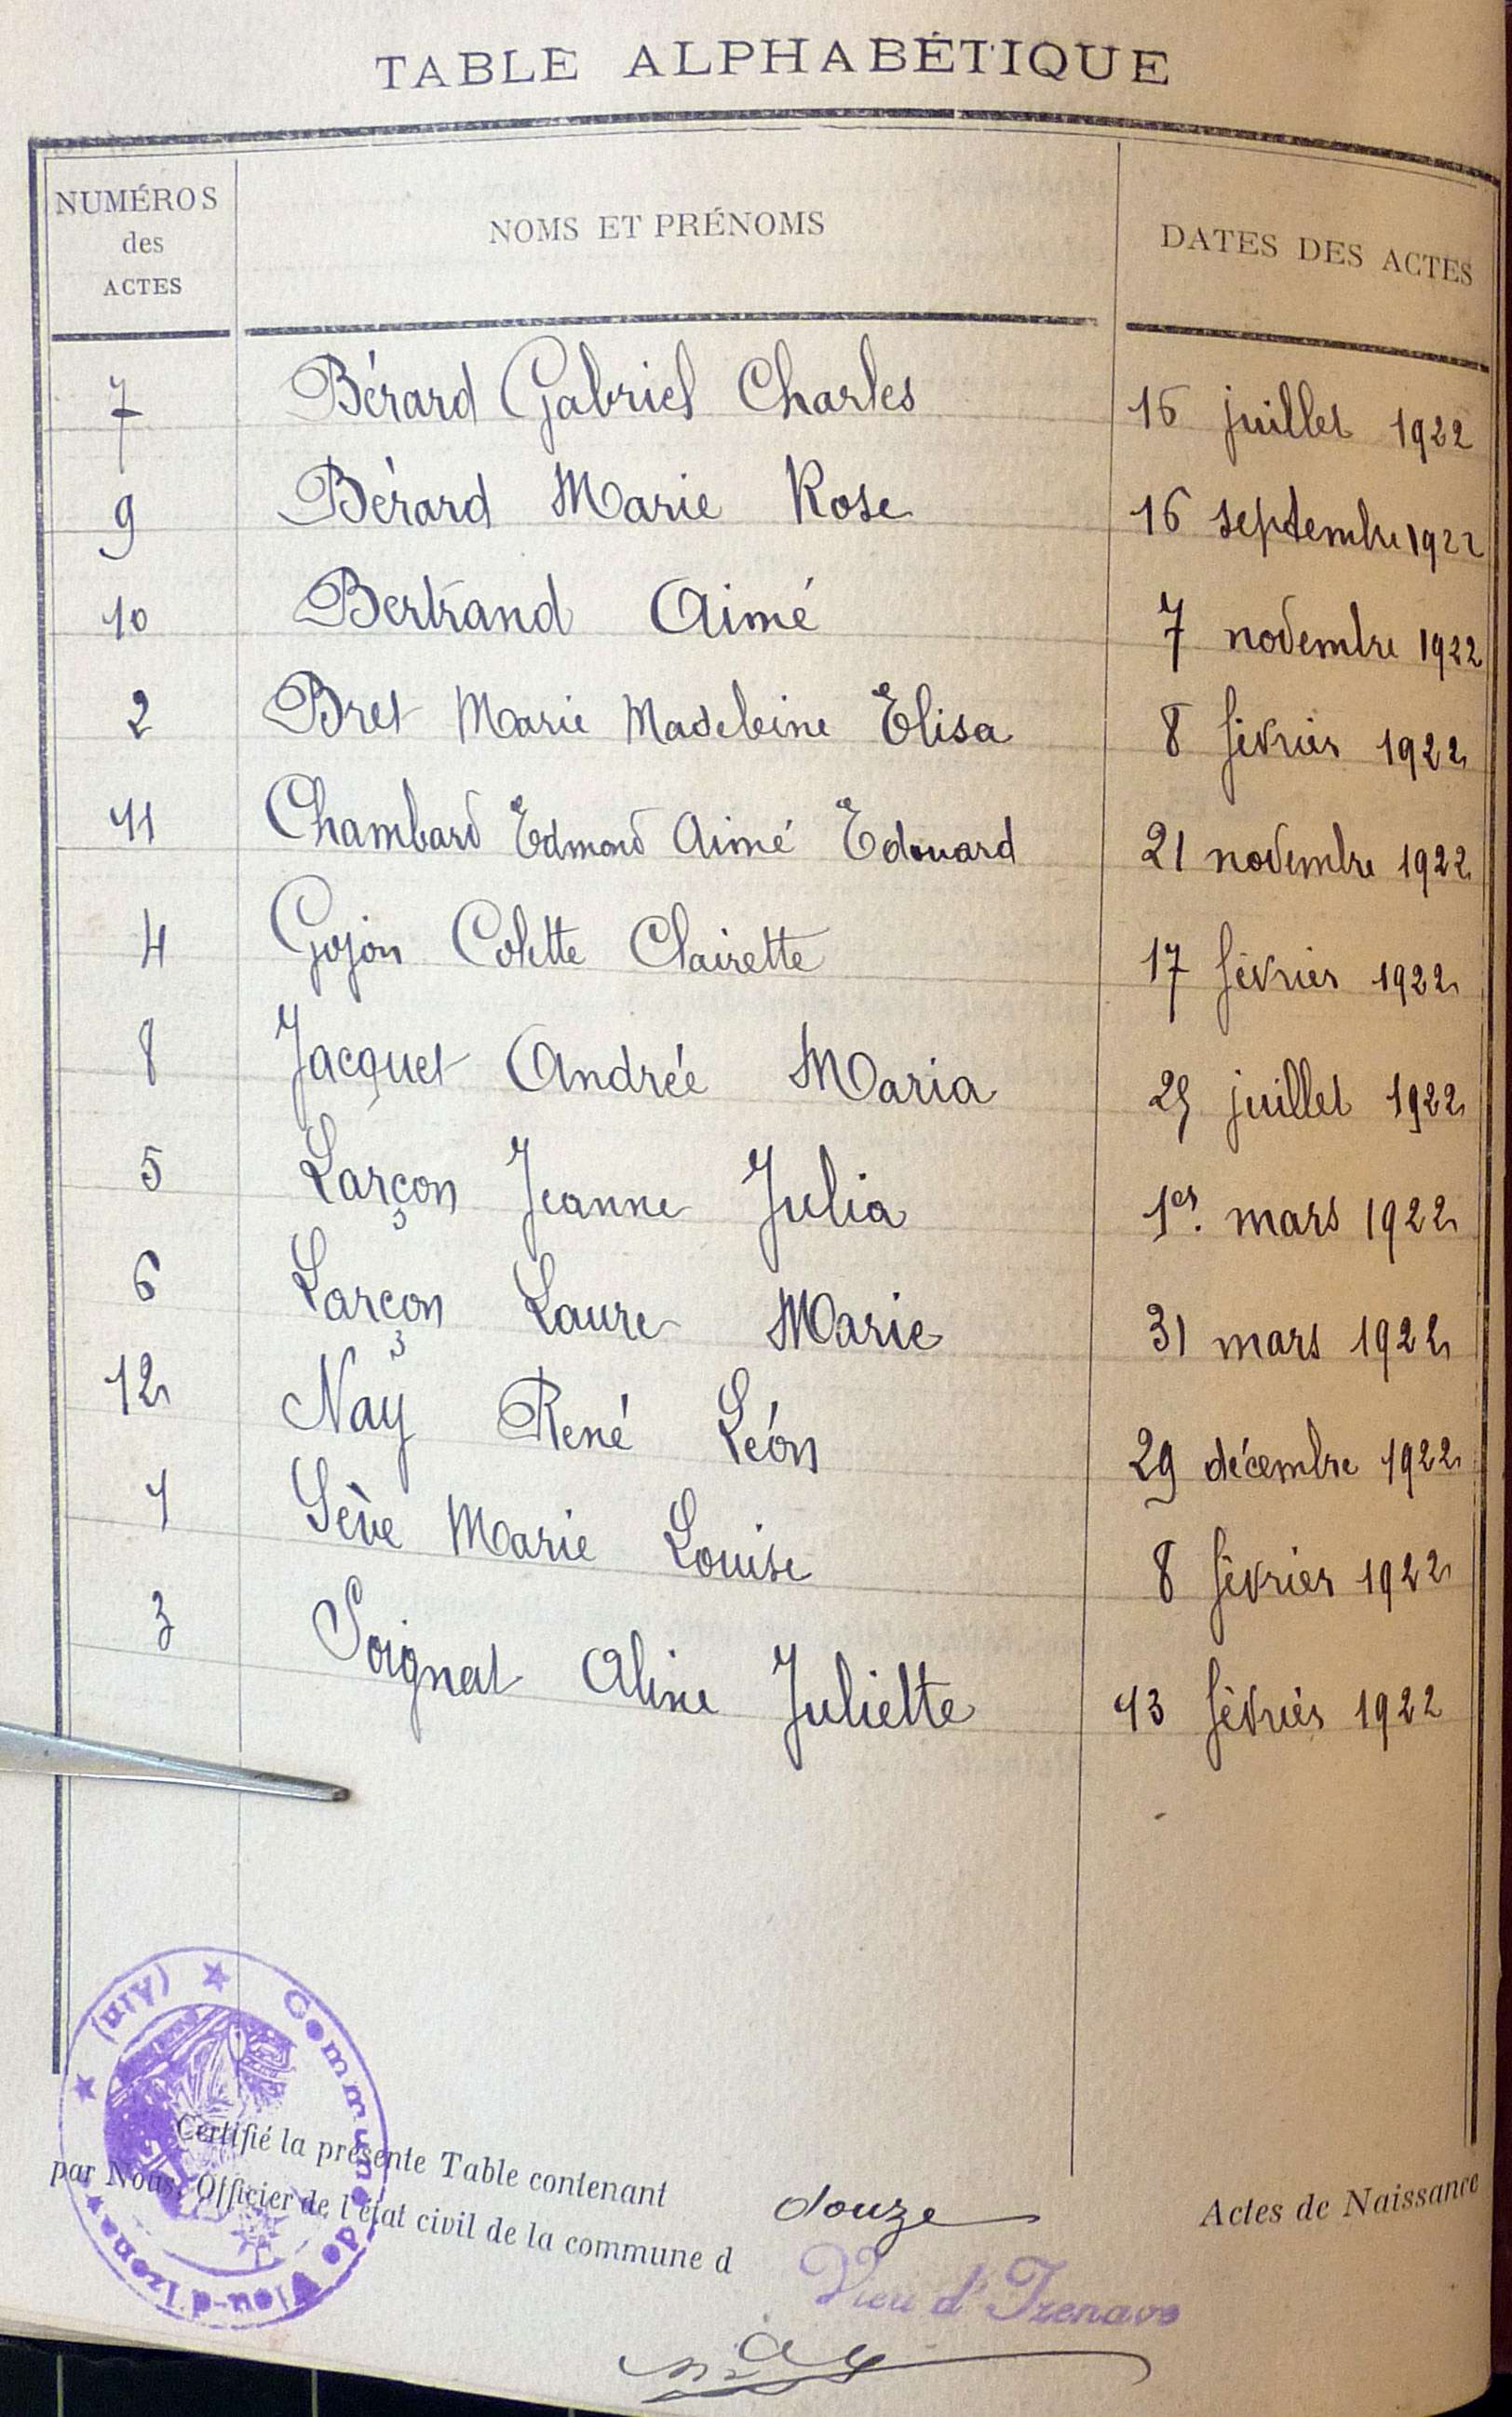 TABLE ALPHABÉTIQUE
NUMÉROS des ACTES NOMS ET PRÉNOMS DATES DES ACTES
7 Bérard Gabriel Charles 16 juillet 1922
9 Bérard Marie Rose 16 septembre 1922
10 Bertrand Aimé 7 novembre 1922
2 Bret Marie Madeleine Elisa 8 février 1922
11 Chambard Edmond Aimé Edouard 21 novembre 1922
4 Gojon Colette Clairette 17 février 1922
8 Jacquet Andrée Maria 25 juillet 1922
5 Larçon Jeanne Julia 1er. mars 1922
6 Larçon Laure Marie 31 mars 1922
12 Nay René Léon 29 décembre 1922
1 Sève Marie Louise 8 février 1922
3 Soignat Aline Juliette 13 février 1922
Commune de Vieu-d'Izenave (Ain)
Certifié la présente Table contenant douze Actes de Naissance
par Nous, Officier de l'état civil de la commune d Vieu d'Izenave
Nay